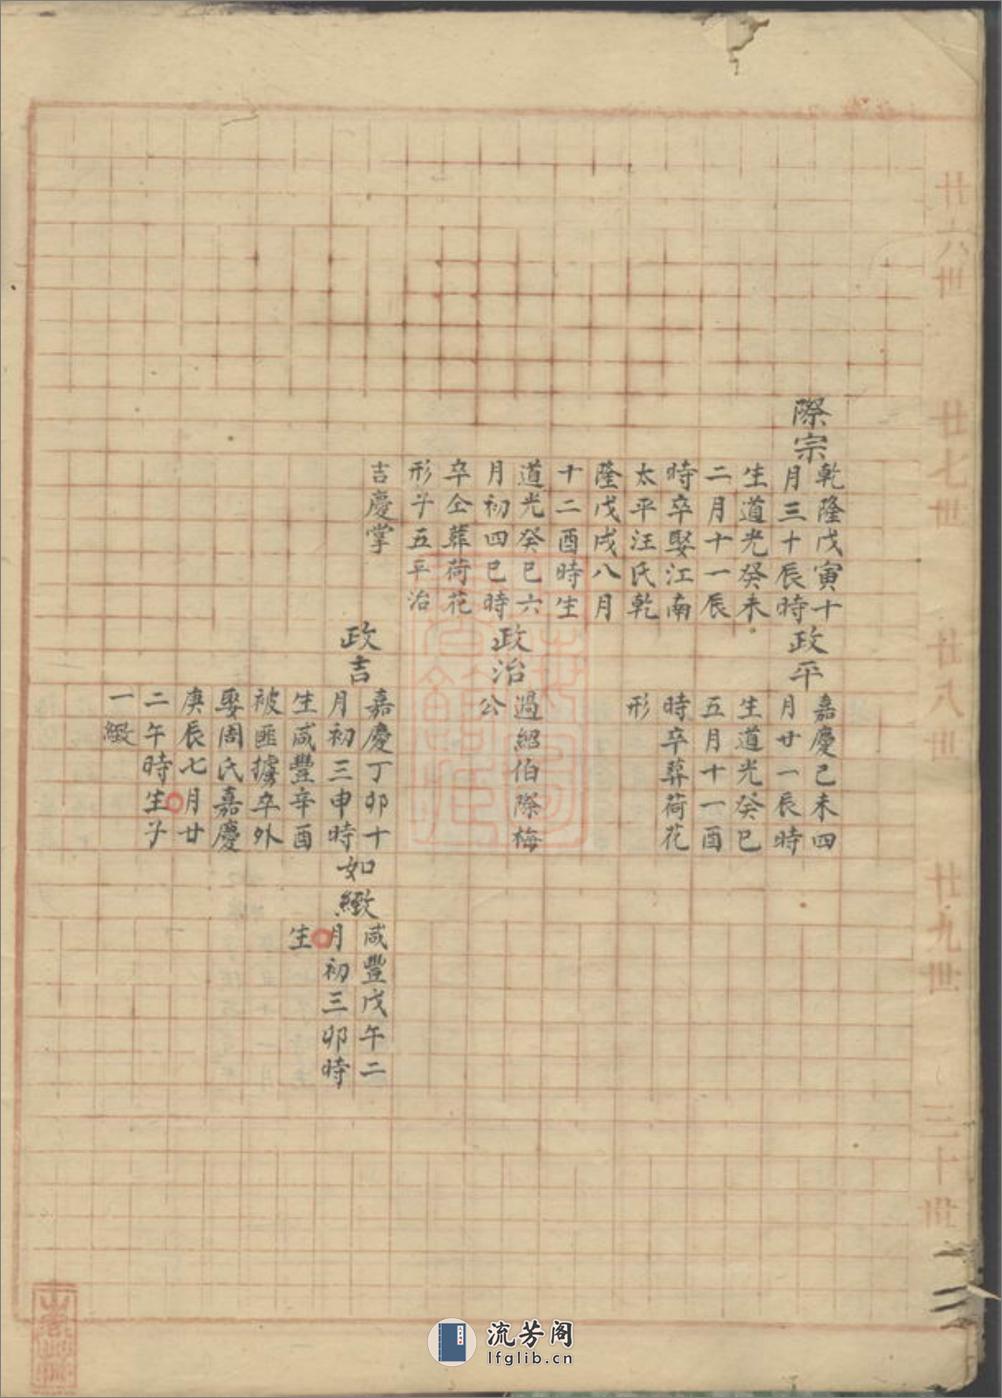 廿六世
廿七世
廿八世
廿九世
三十世
際宗
乾隆戊寅十
月三十辰時
生道光癸未
二月十一辰
時卒娶江南
太平汪氏乾
隆戊戌八月
十二酉時生
道光癸巳六
月初四巳時
卒仝葬荷花
形子五平治
吉慶掌
政平
嘉慶己未四
月廿一辰時
生道光癸巳
五月十一酉
時卒葬荷花
形
政治
過紹伯際梅
公
政吉
嘉慶丁卯十
月初三申時
生咸豐辛酉
被匪擄卒外
娶周氏嘉慶
庚辰七月廿
二午時生子
一緻
如緻
咸豐戊午二
月初三卯時
生
流芳阁
lfglib.cn